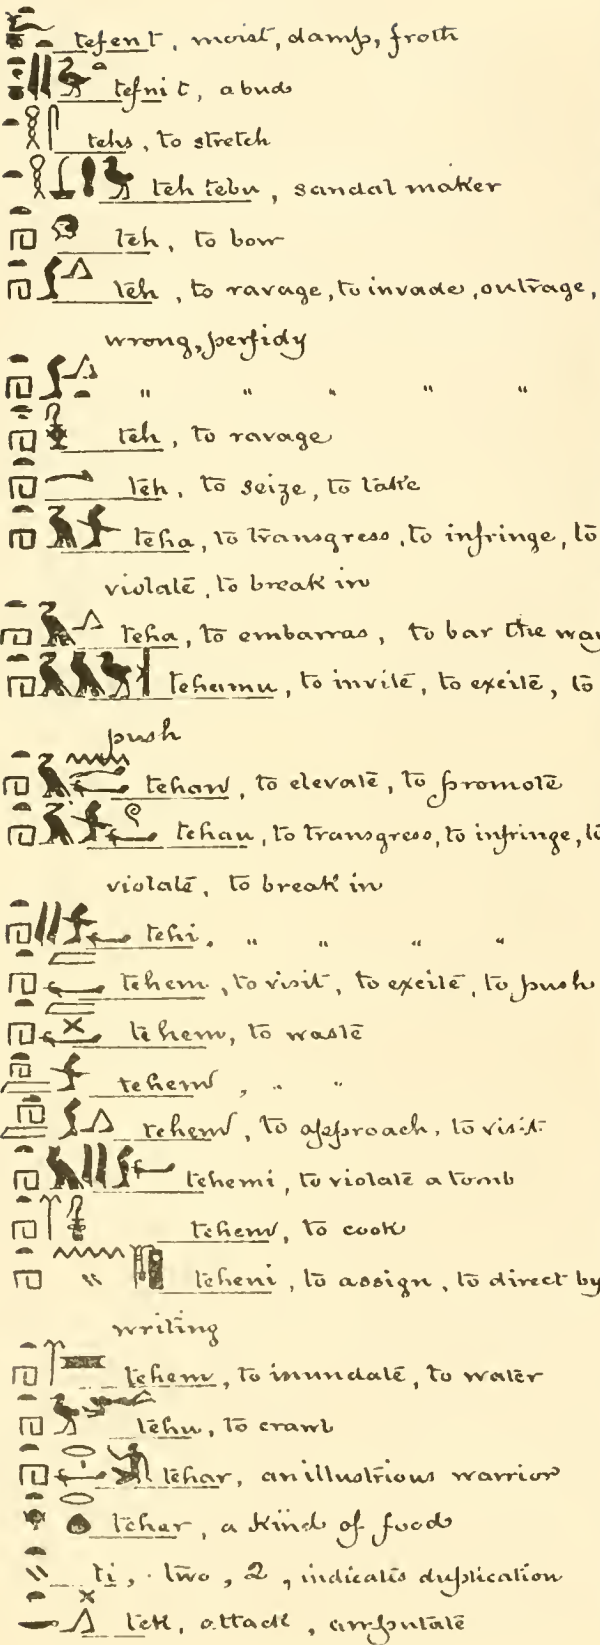 tefent, moist, damp, froth
tefnit, a bud
tehs, to stretch
teh tebu, sandal maker
teh, to bow
teh, to ravage, to invade, outrage,
wrong, perfidy
" " " " "
teh, to ravage
teh, to seize, to take
teha, to transgress, to infringe, to
violate, to break in
teha, to embarras, to bar the way
tehamu, to invite, to excite, to
push
tehan, to elevate, to promote
tehau, to transgress, to infringe, to
violate, to break in
tehi, " " " "
tehem, to visit, to excite, to push
tehem, to waste
tehem, " "
tehem, to approach, to visit
tehemi, to violate a tomb
tehem, to cook
teheni, to assign, to direct by
writing
tehem, to inundate, to water
tehu, to crawl
tehar, an illustrious warrior
tehar, a kind of food
ti, two, 2, indicates duplication
tek, attack, amputate